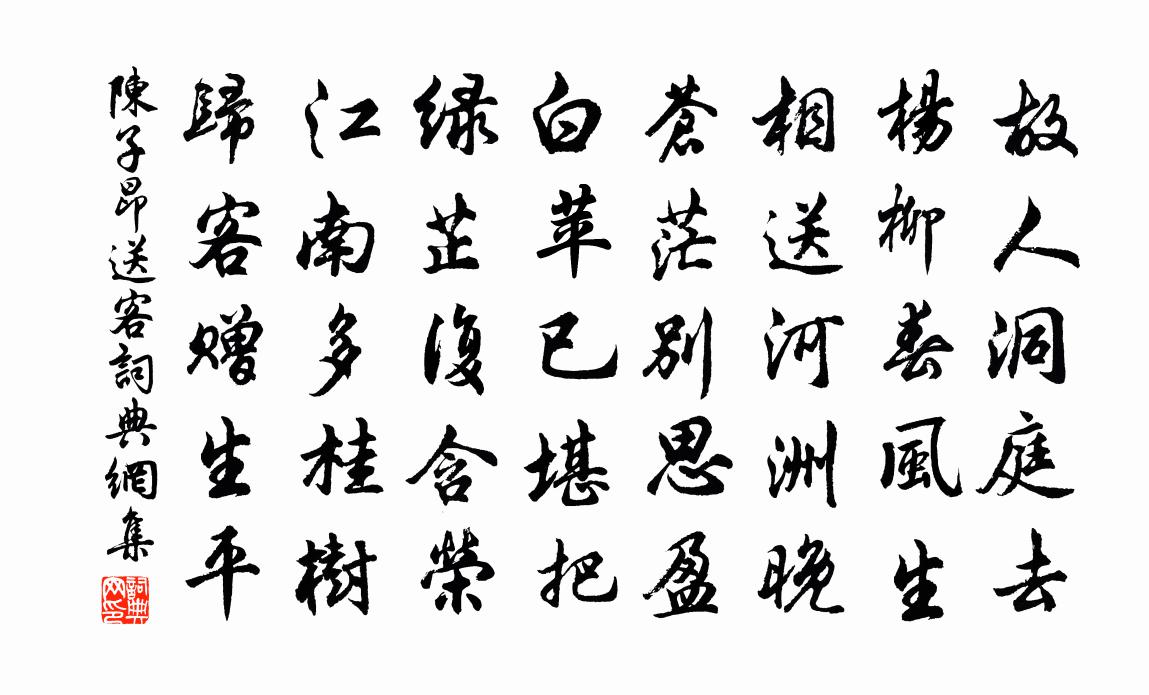 故人洞庭去
楊柳春風生
相送河洲晚
蒼茫別思盈
白苹已堪把
緑芷復含榮
江南多桂樹
歸客贈生平
陳子昂送客詞典網集
詞典網印